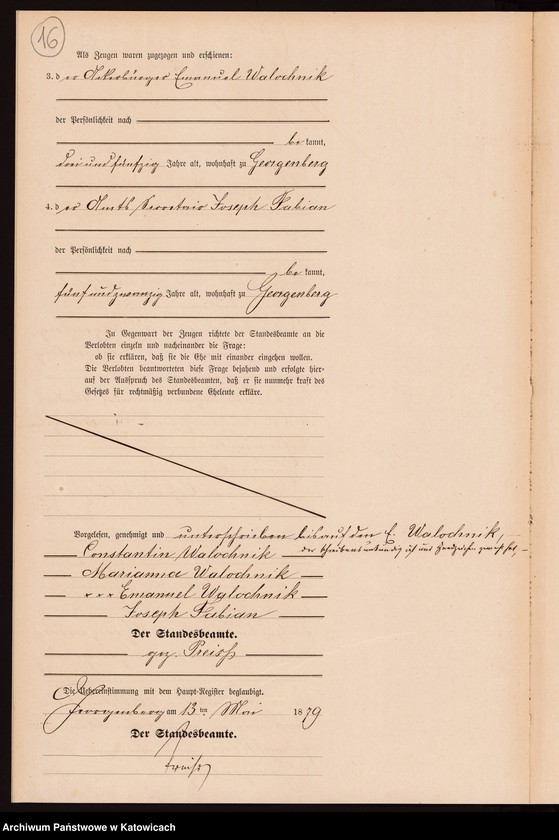 16
Als Zeugen waren zugezogen und erschienen:
3. der Ackerbürger Emanuel Walochnik
der Persönlichkeit nach
be kannt,
drei und fünfzig Jahre alt, wohnhaft zu Georgenberg
4. der Amts Secretair Joseph Fabian
der Persönlichkeit nach
be kannt,
fünf und zwanzig Jahre alt, wohnhaft zu Georgenberg
In Gegenwart der Zeugen richtete der Standesbeamte an die
Verlobten einzeln und nacheinander die Frage:
ob sie erklären, daß sie die Ehe mit einander eingehen wollen.
Die Verlobten beantworteten diese Frage bejahend und erfolgte hier-
auf der Ausspruch des Standesbeamten, daß er sie nunmehr kraft des
Gesetzes für rechtmäßig verbundene Eheleute erkläre.
Vorgelesen, genehmigt und unterschrieben bis auf den E. Walochnik,
der schreibensunkundig ist und Handzeichen gemacht hat,
Constantin Walochnik
Marianna Walochnik
x x x Emanuel Walochnik
Joseph Fabian
Der Standesbeamte.
gez. Preiss
Die Uebereinstimmung mit dem Haupt-Register beglaubigt.
Georgenberg am 13 ten Mai 1879
Der Standesbeamte.
Preiss
Archiwum Państwowe w Katowicach